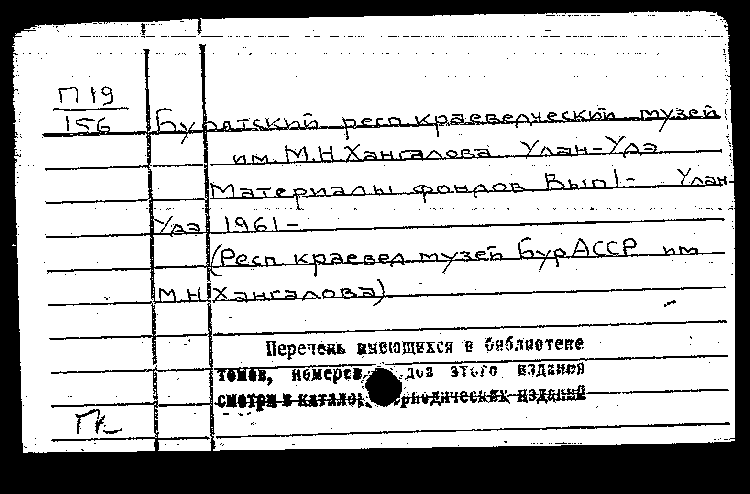 П 19
156
Бурятский респ краеведческий музей
им. М.Н Хангалова Улан-Удэ
Материалы фондов Вып 1- Улан-
Удэ 1961-
(Респ краевед музей БурАССР им
М.Н Хангалова)
Перечень имеющихся в библиотеке
томов, номеров, годов этого издания
смотри в каталоге периодических изданий